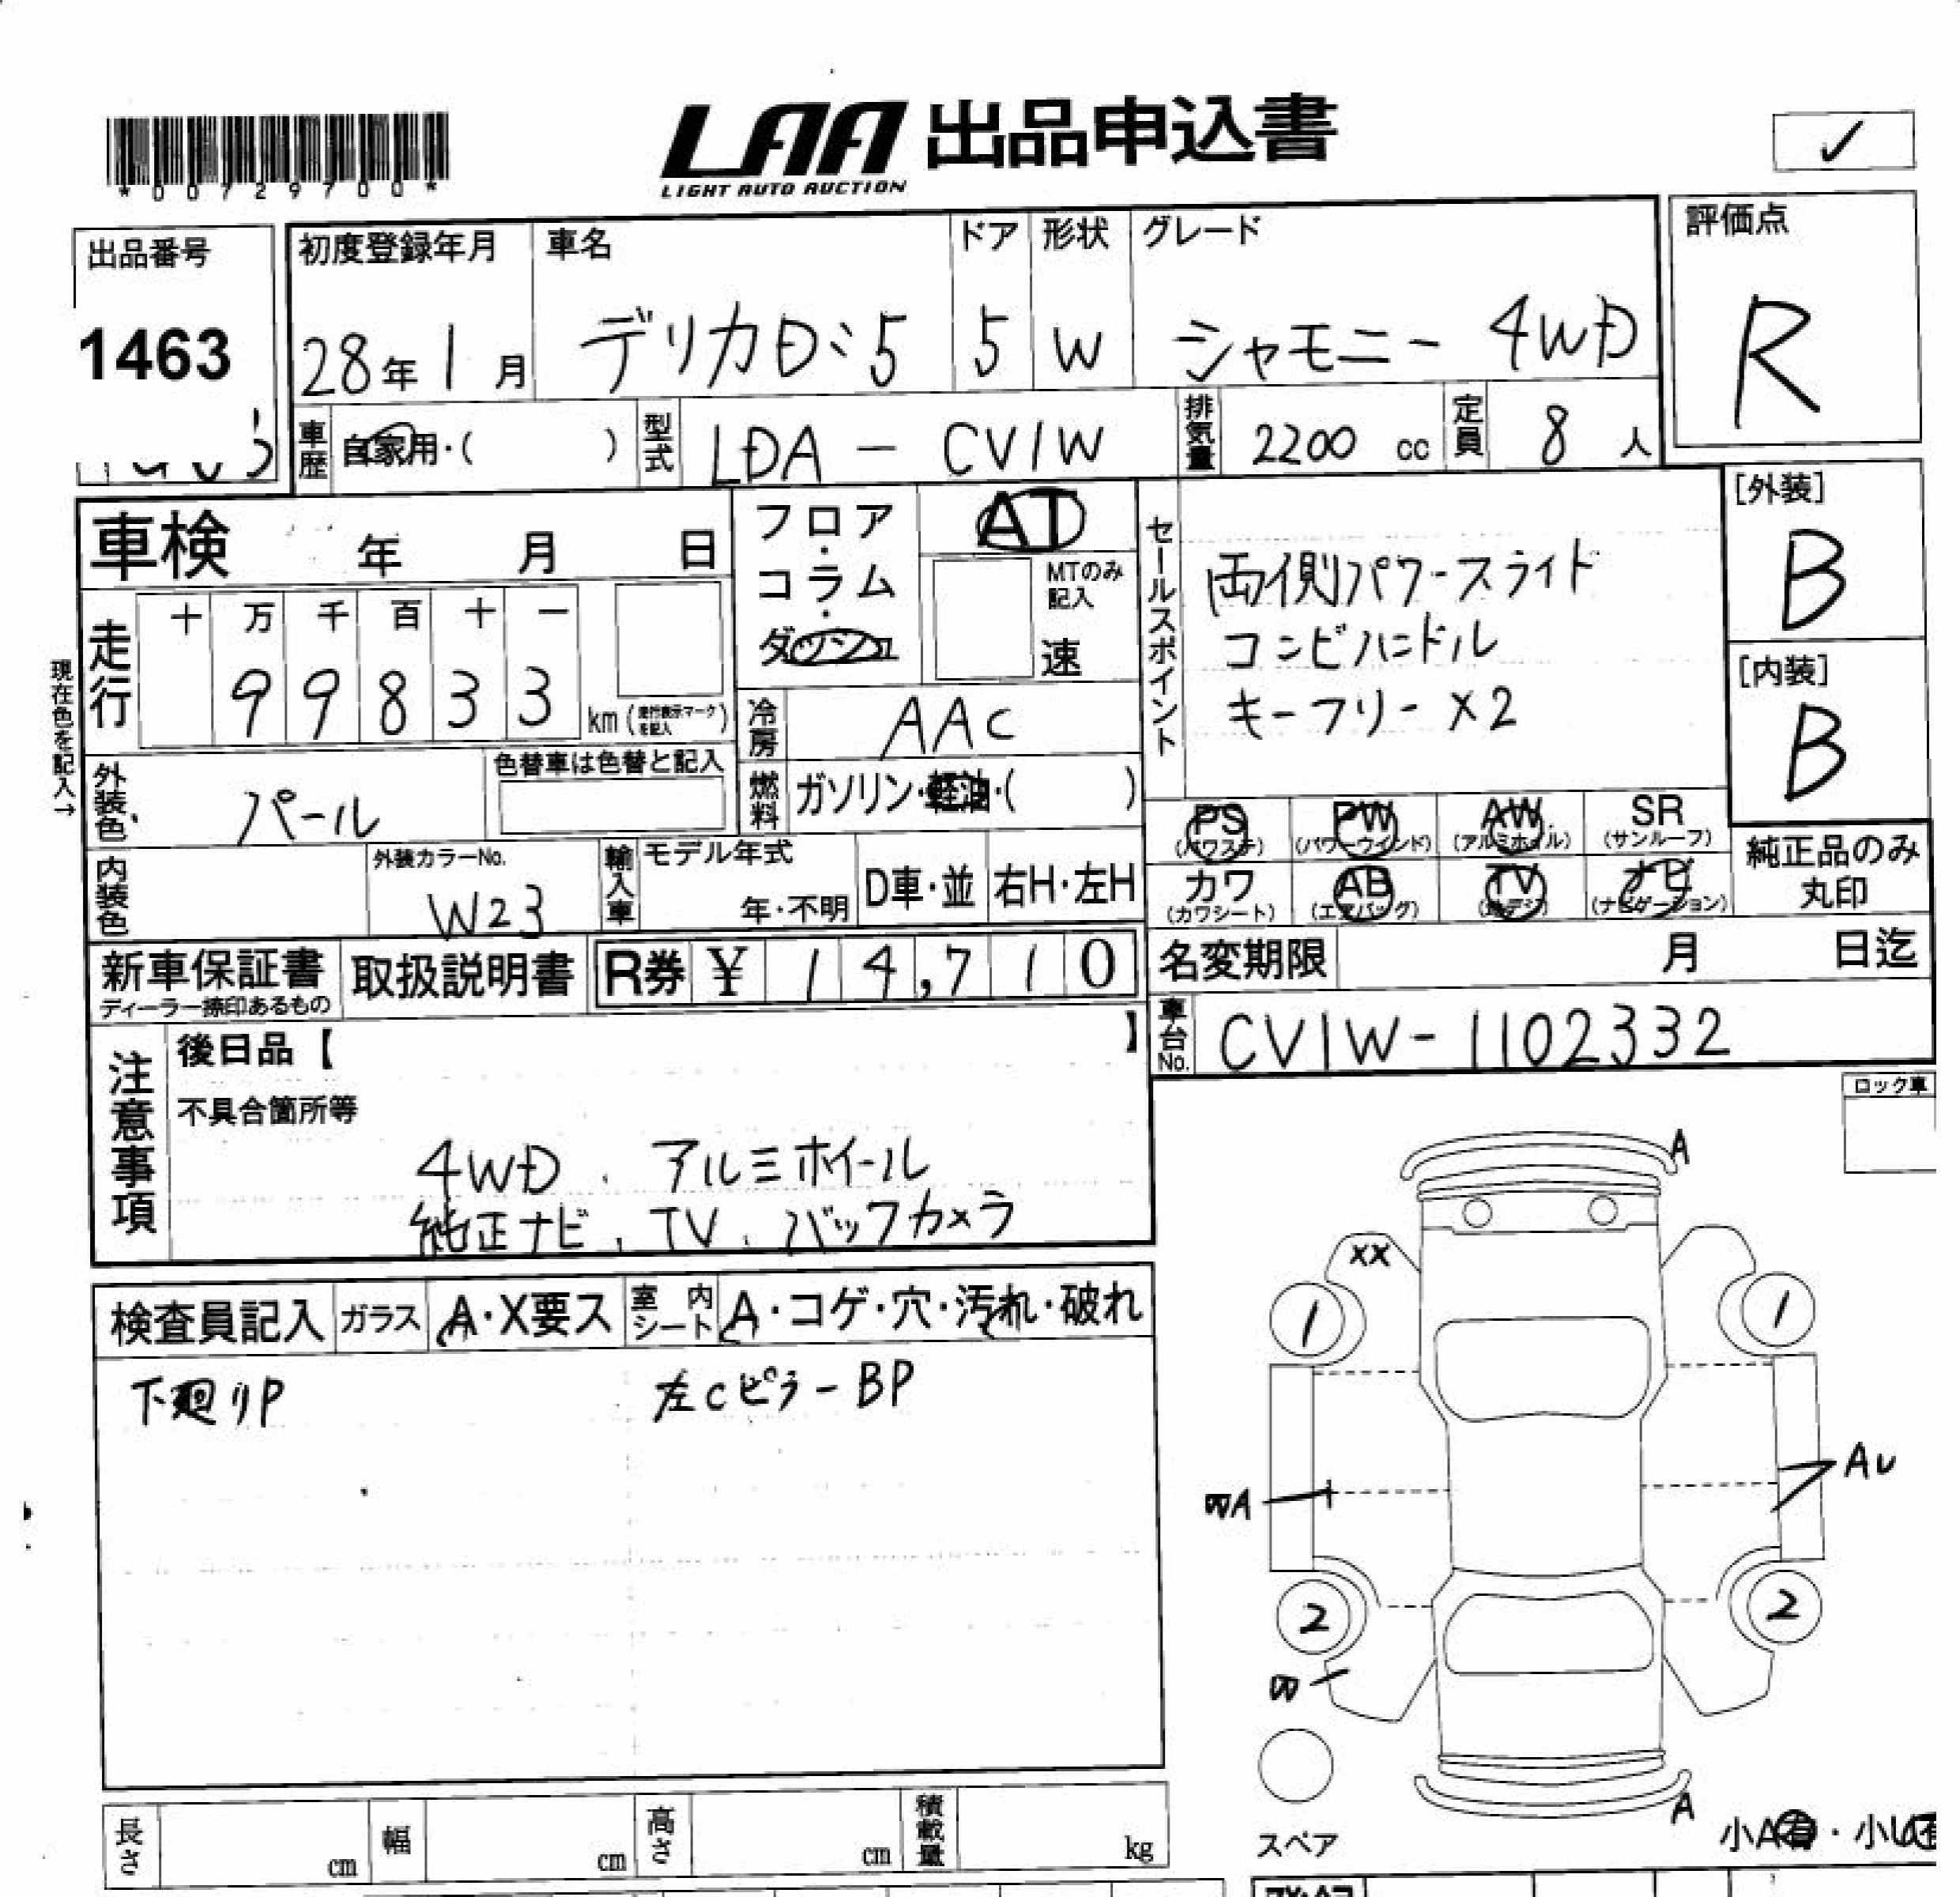 *00729700*
LAA 出品申込書
LIGHT AUTO AUCTION
✓
出品番号
1463
初度登録年月
28年1月
車名
デリカD:5
ドア
5
形状
W
グレード
シャモニー 4WD
評価点
R
車歴
自家用・( )
型式
LDA-CV1W
排気量
2200 cc
定員
8人
[外装]
B
[内装]
B
車検 年 月 日
フロア・コラム・ダッシュ
AT
MTのみ記入
速
セールスポイント
両側パワースライド
コンビハンドル
キーフリー×2
現在色を記入→
走行
十 万 千 百 十 一
9 9 8 3 3
km(走行表示マークを記入)
冷房
AAC
燃料
ガソリン・軽油・( )
外装色
パール
色替車は色替と記入
PS
(パワステ)
PW
(パワーウインド)
AW
(アルミホイル)
SR
(サンルーフ)
カワ
(カワシート)
AB
(エアバッグ)
TV
(地デジ)
ナビ
(ナビゲーション)
純正品のみ
丸印
内装色
外装カラーNo.
W23
輸入車
モデル年式
年・不明
D車・並
右H・左H
新車保証書
ディーラー捺印あるもの
取扱説明書
R券 ¥ 14,710
名変期限 月 日迄
車台No.
CV1W-1102332
注意事項
後日品【 】
不具合箇所等
4WD、アルミホイール
純正ナビ、TV、バックカメラ
ロック車
検査員記入
ガラス
A・X要ス
室内シート
A・コゲ・穴・汚れ・破れ
下廻りP
左CピラーBP
A
XX
1
1
AU
A
2
2
A
スペア
小A有・小U有
長さ cm
幅 cm
高さ cm
積載量 kg